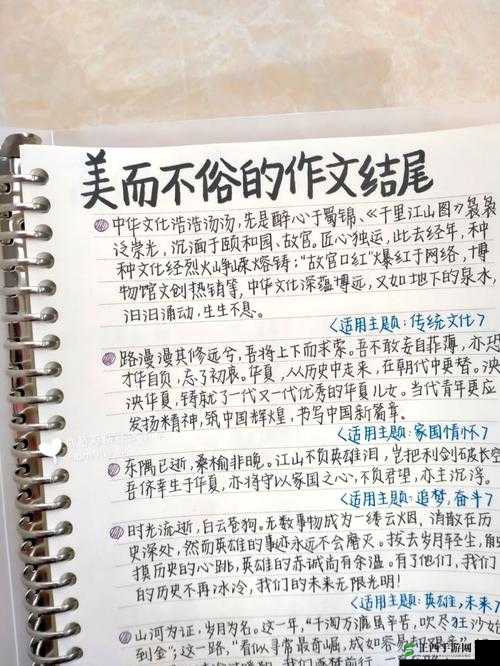 美而不俗的作文结尾
中华文化浩浩汤汤,先是醉心于蜀锦、《千里江山图》袅袅
泛崇光,沉湎于颐和园、故宫。匠心独运,此去经年,种
种文化经烈火峥嵘熔铸;“故宫口红”爆红于网络,博
物馆文创热销等,中华文化深蕴博远,又如地下的泉水,
汩汩涌动,生生不息。
<适用主题:传统文化>
路漫漫其修远兮,吾将上下而求索。吾不敢妄自菲薄,亦恐
才华自负,忘了初衷。华夏,从历史中走来,在朝代中更替。泱
泱华夏,铸就了一代又一代优秀的华夏儿女。当代青年更应
发扬精神,筑中国辉煌,书写中国新篇章。
<适用主题:家国情怀>
东隅已逝,桑榆非晚。江山不负英雄泪,岂把利剑破长空
吾侪幸生于华夏,亦将守以家国之心,不负君望,亦主沉浮。
<适用主题:追梦,奋斗>
时光流逝,白云苍狗。无数事物成为一缕云烟,消散在历
史深处,然而英雄的事迹永远不会磨灭。拨去岁月轻尘,触
摸历史的心跳,英雄的赤诚尚有余温。有了他们,我们
的历史不再冰冷,我们的未来无限光明!
<适用主题:英雄,未来>
山河为证,岁月为名。这一年,“千淘万漉虽辛苦,吹尽狂沙始
到金”;这一路,“看似寻常最奇崛,成如容易却艰辛”